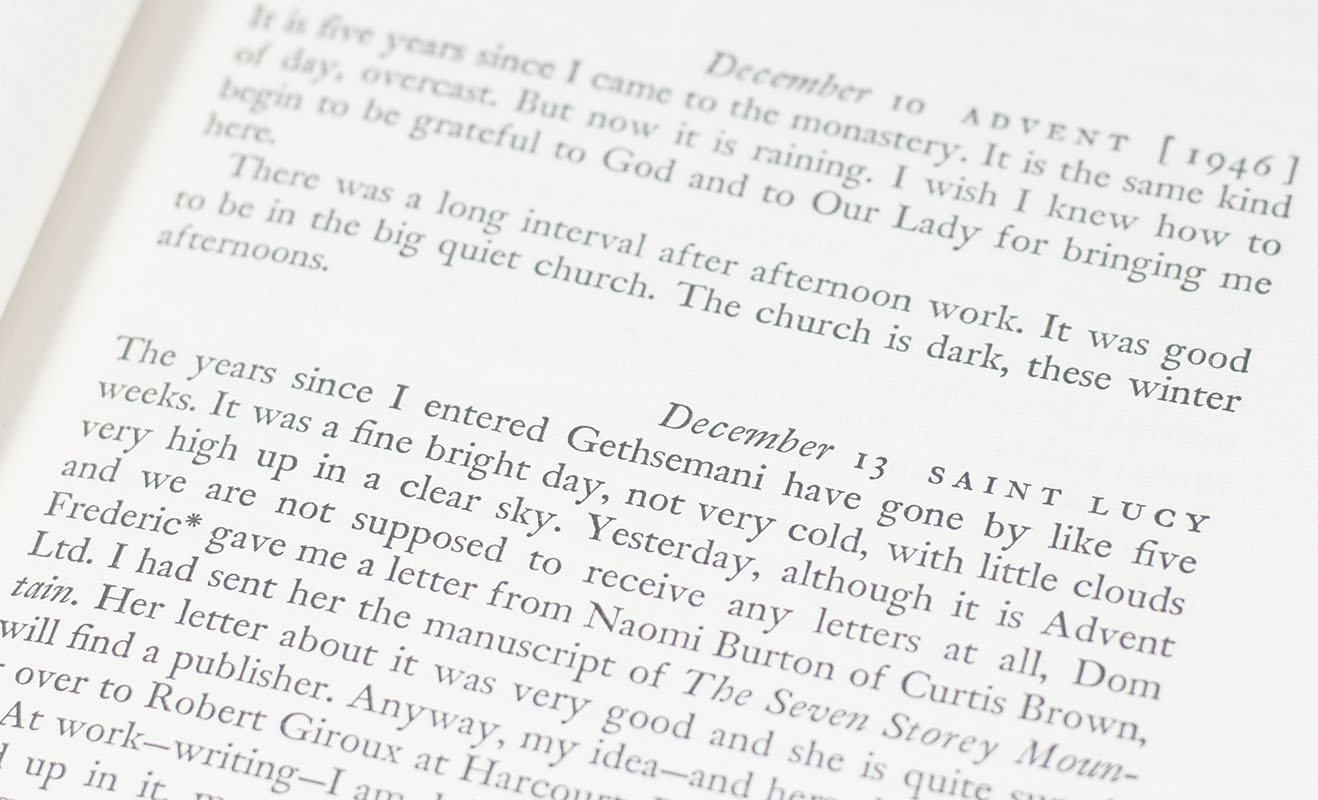 December 10 ADVENT [1946]
It is five years since I came to the monastery. It is the same kind
of day, overcast. But now it is raining. I wish I knew how to
begin to be grateful to God and to Our Lady for bringing me
here.
There was a long interval after afternoon work. It was good
to be in the big quiet church. The church is dark, these winter
afternoons.
December 13 SAINT LUCY
The years since I entered Gethsemani have gone by like five
weeks. It was a fine bright day, not very cold, with little clouds
very high up in a clear sky. Yesterday, although it is Advent
and we are not supposed to receive any letters at all, Dom
Frederic* gave me a letter from Naomi Burton of Curtis Brown,
Ltd. I had sent her the manuscript of The Seven Storey Moun-
tain. Her letter about it was very good and she is quite
will find a publisher. Anyway, my idea—and
over to Robert Giroux at Harcourt
At work—writing—I am
up in it.